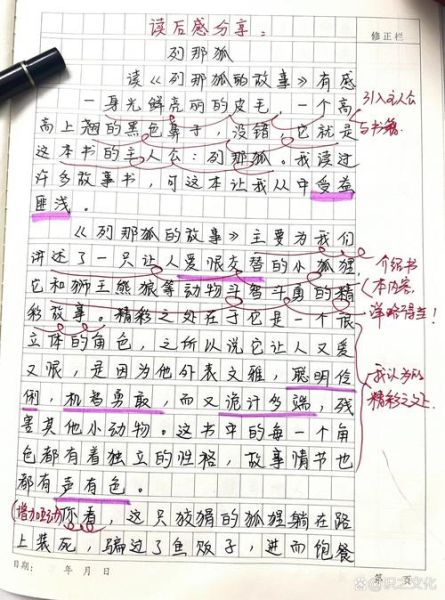 读后感分享：
修正栏
列那狐
读《列那狐的故事》有感
一身光鲜亮丽的皮毛，一个高
高上翘的黑色鼻子，没错，它就是
这本书的主人公：列那狐。我读过
许多故事书，可这本让我从中受益
匪浅。
引入主人公
与书籍
《列那狐的故事》主要为我们
讲述了一只让人爱恨交替的小狐狸
它和狮王熊狼等动物斗智斗勇的精
彩故事。精彩之处在于它是一个很
立体的角色，之所以说它让人又爱
又恨，是因为他外表文雅，聪明伶
俐，机智勇敢，而又诡计多端，残
害其他小动物。这书中的每一个角
色都有着独立的性格，故事情节也
都有声有色。
介绍书
本内容，
详略得当！
我认为的
精彩之处
(增加互动)你看，这只狡猾的狐狸躺在路
上装死，骗过了鱼贩子，进而饱餐
日期： 年 月 日
第 页
知之文化